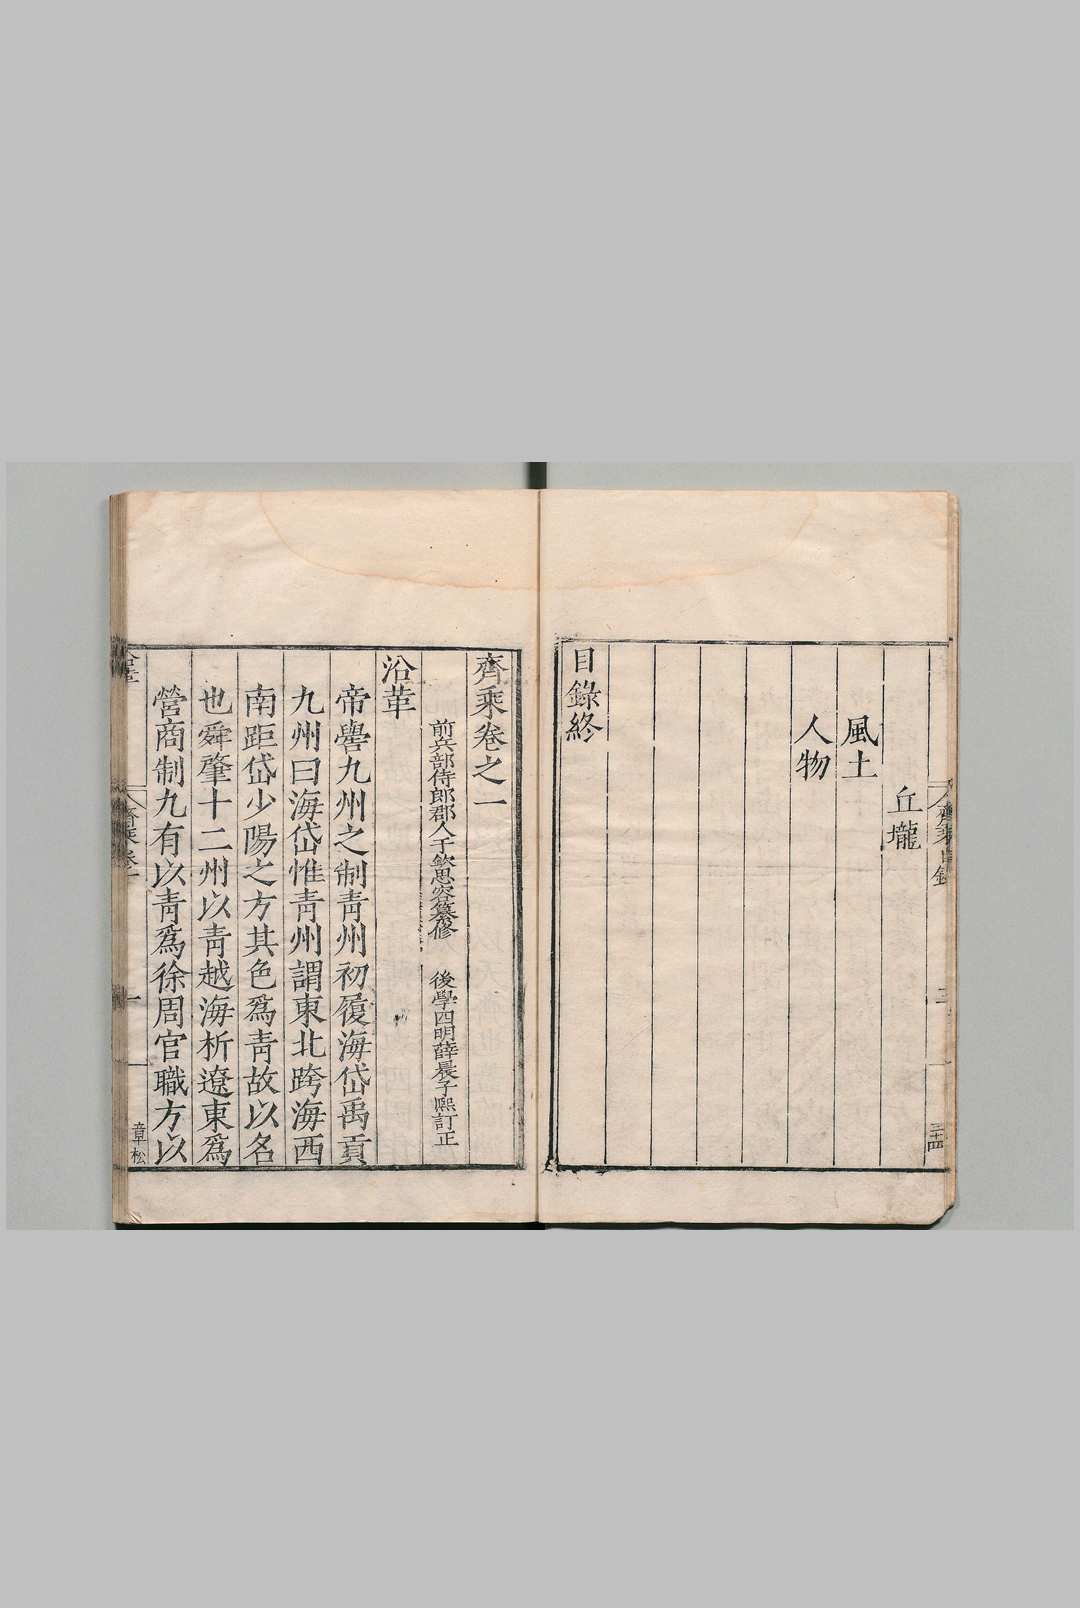 齊乘目錄
三
三十四
丘壠
風土
人物
目錄終
齊乘卷之一
前兵部侍郎郡人于欽思容纂修 後學四明薛晨子熈訂正
沿革
帝嚳九州之制青州初履海岱禹貢
九州曰海岱惟青州謂東北跨海西
南距岱少陽之方其色爲青故以名
也舜肇十二州以青越海析遼東爲
營商制九有以青爲徐周官職方以
齊乘卷一
一
章松